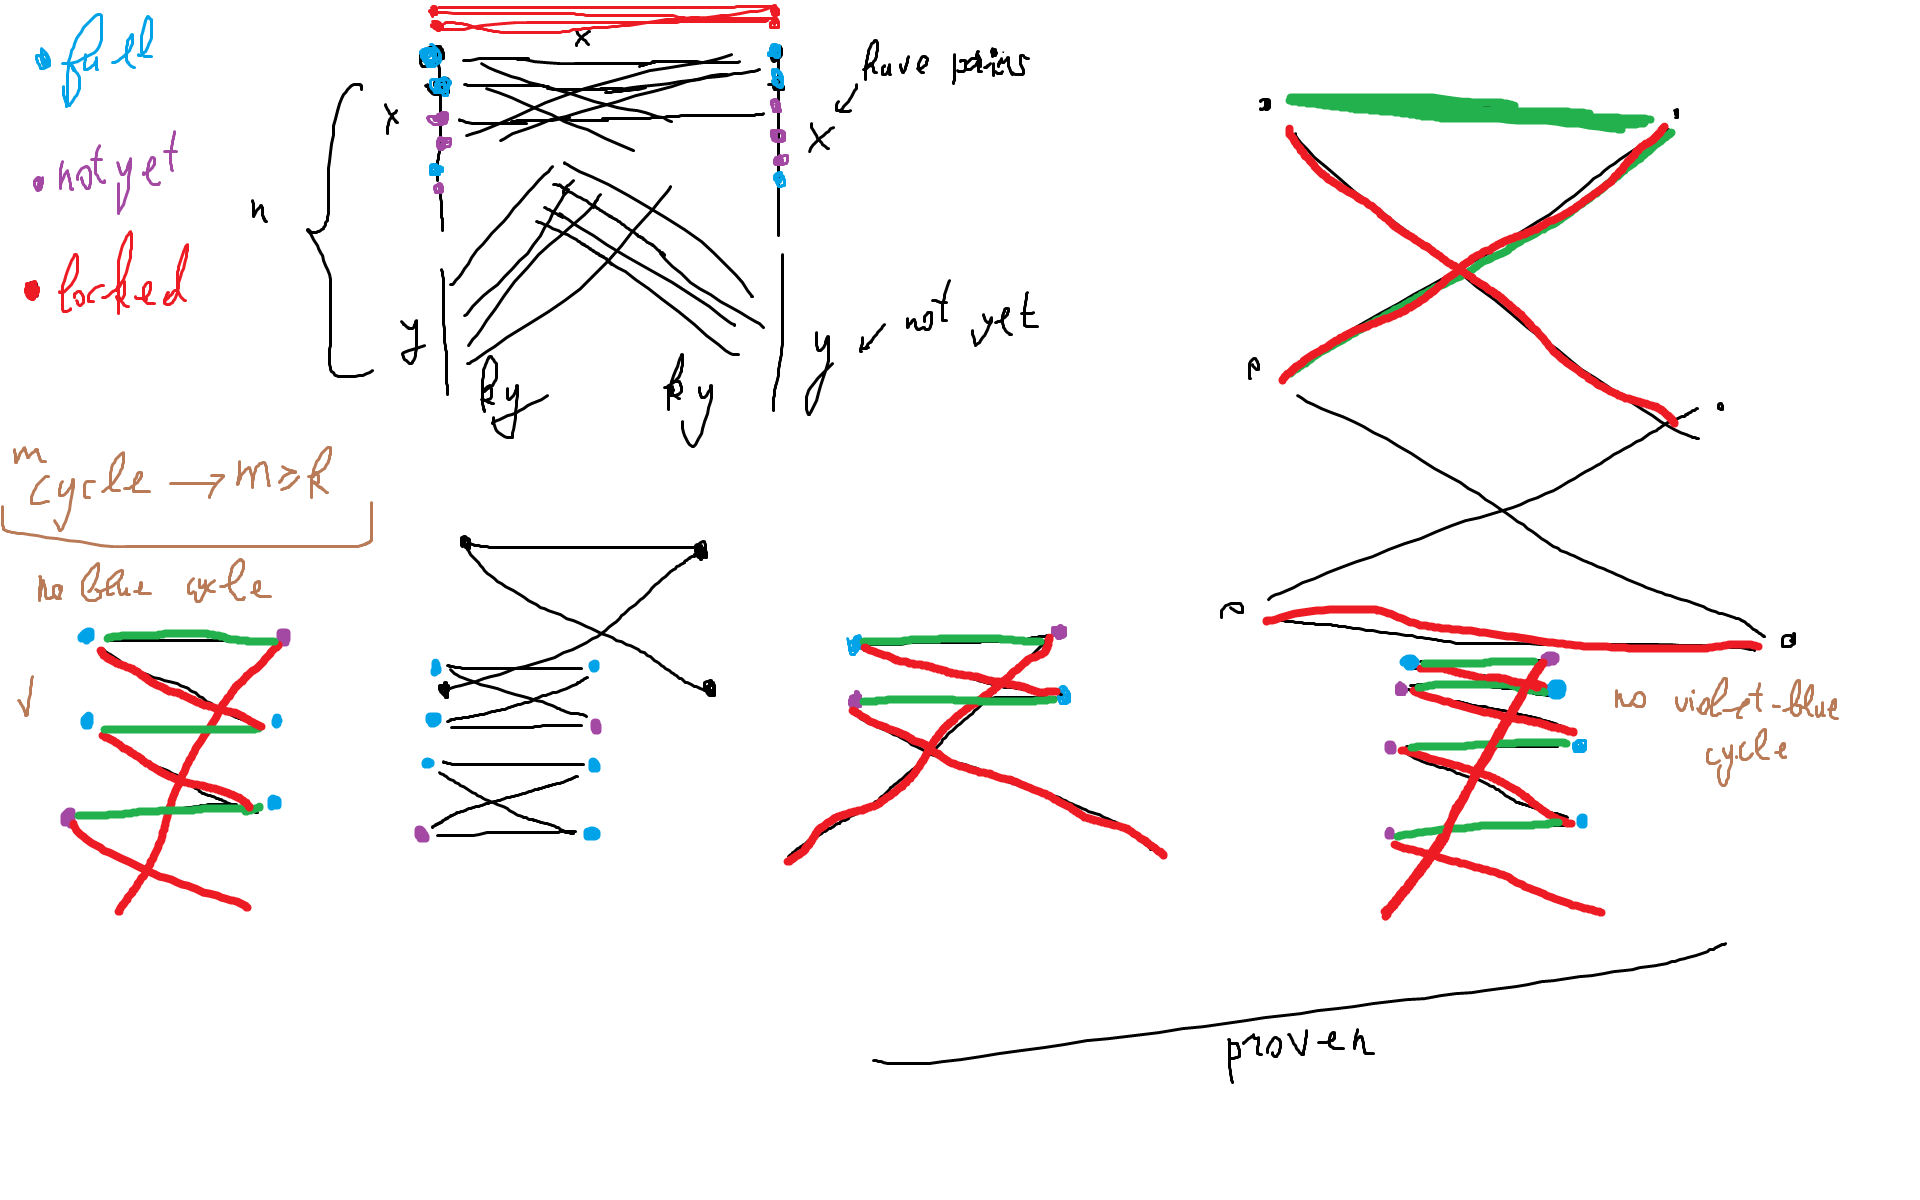 full
not yet
locked
x
have pairs
x
x
n
y
y
not yet
ky
ky
m
cycle → m ≥ k
no blue cycle
no violet-blue
cycle
proven